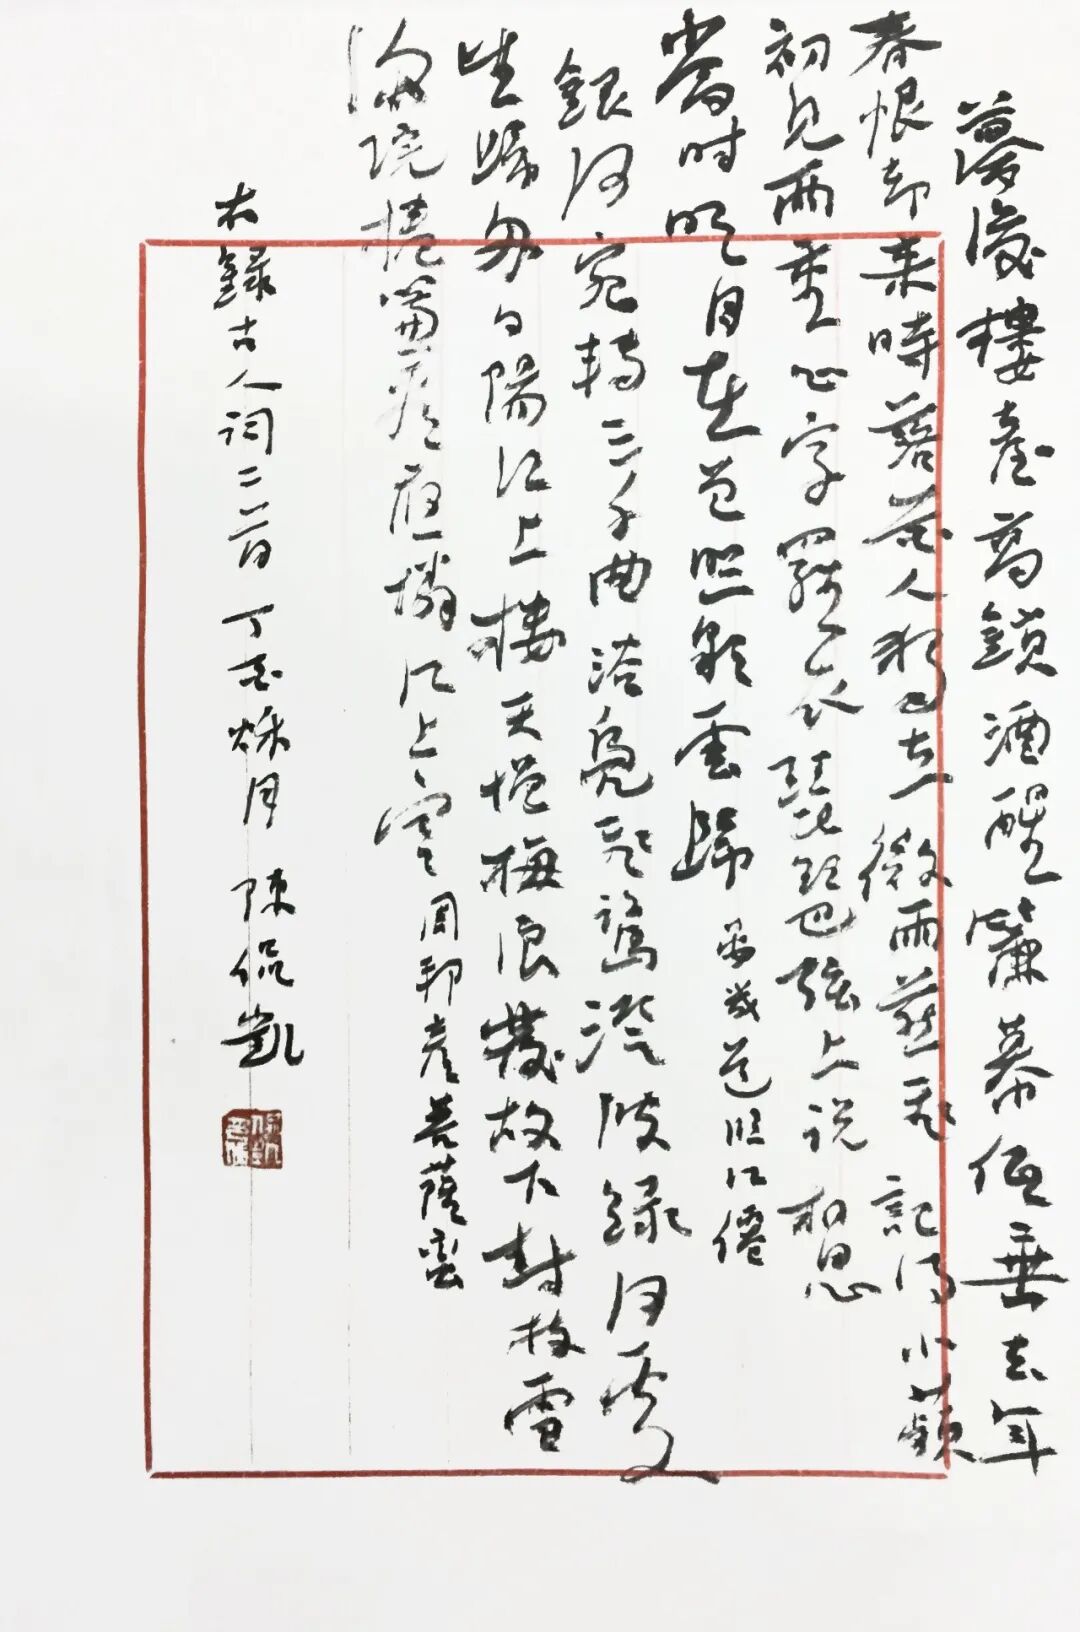 夢後樓臺高鎖酒醒簾幕低垂去年
春恨却来時落花人獨立微雨燕飛 記得小蘋
初見兩重心字羅衣琵琶弦上説相思
當時明月在曾照彩雲歸 晏幾道臨江僊
銀河宛轉三千曲浴鳧飛鷺澄波緑何處
是歸舟夕陽江上樓天憎梅浪發故下封枝雪
深院捲簾看應憐江上寒 周邦彦菩薩蠻
右錄古人詞二首 丁酉秋月 陳侃凱